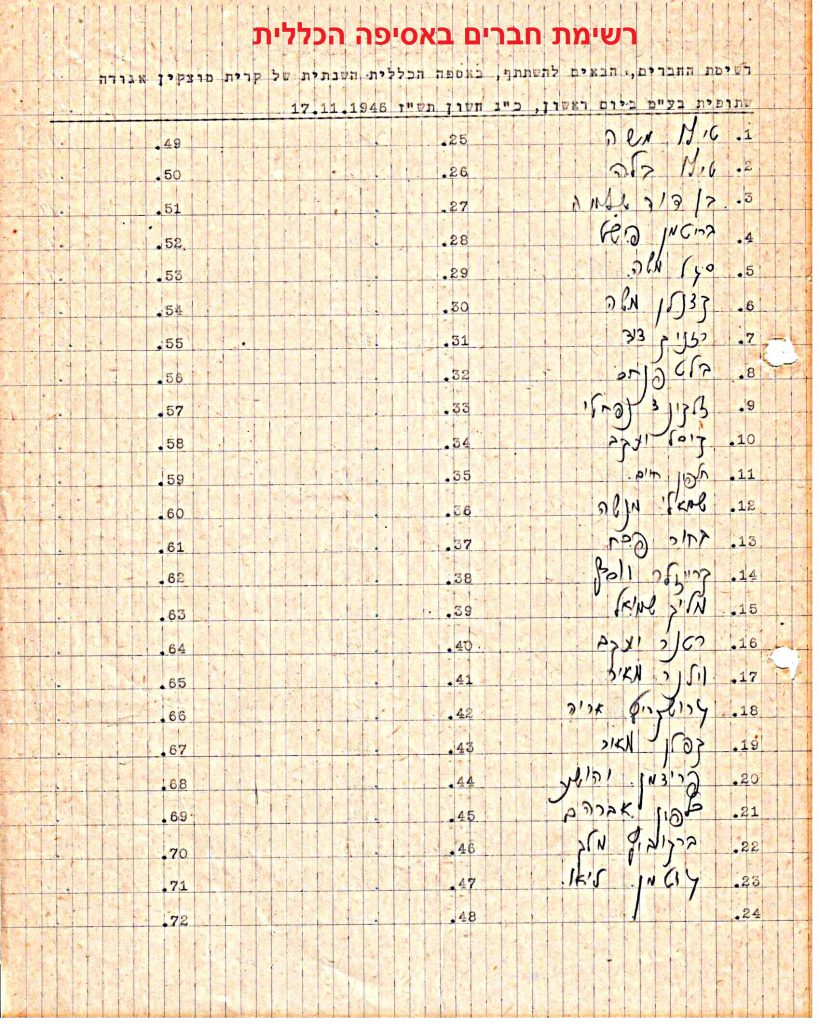 רשימת חברים באסיפה הכללית
רשימת החברים, הבאים להשתתף, באספה הכללית השנתית של קרית מוצקין אגודה
שתופית בע"מ ביום ראשון, כ"ג חשון תש"ז 17.11.1946
1. משה
2. בלה
3. בן דוד שלמה
4. ברייטמן
5. סגל משה
6. קצנלסון משה
7. רזניק דוד
8. פנחס
9. זלקינד נפתלי
10. קיסל יעקב
11. חלפון חיים
12. שמאלי מנשה
13. בחור פסח
14.
15. מליק שמואל
16. רטנר יעקב
17. וילנר מאיר
18. אריה
19. קפלן מאיר
20. פרידמן יהושע
21. כלפון אברהם
22. ברקוביץ מלך
23. גוטמן ליאו
24.
25.
26.
27.
28.
29.
30.
31.
32.
33.
34.
35.
36.
37.
38.
39.
40.
41.
42.
43.
44.
45.
46.
47.
48.
49.
50.
51.
52.
53.
54.
55.
56.
57.
58.
59.
60.
61.
62.
63.
64.
65.
66.
67.
68.
69.
70.
71.
72.